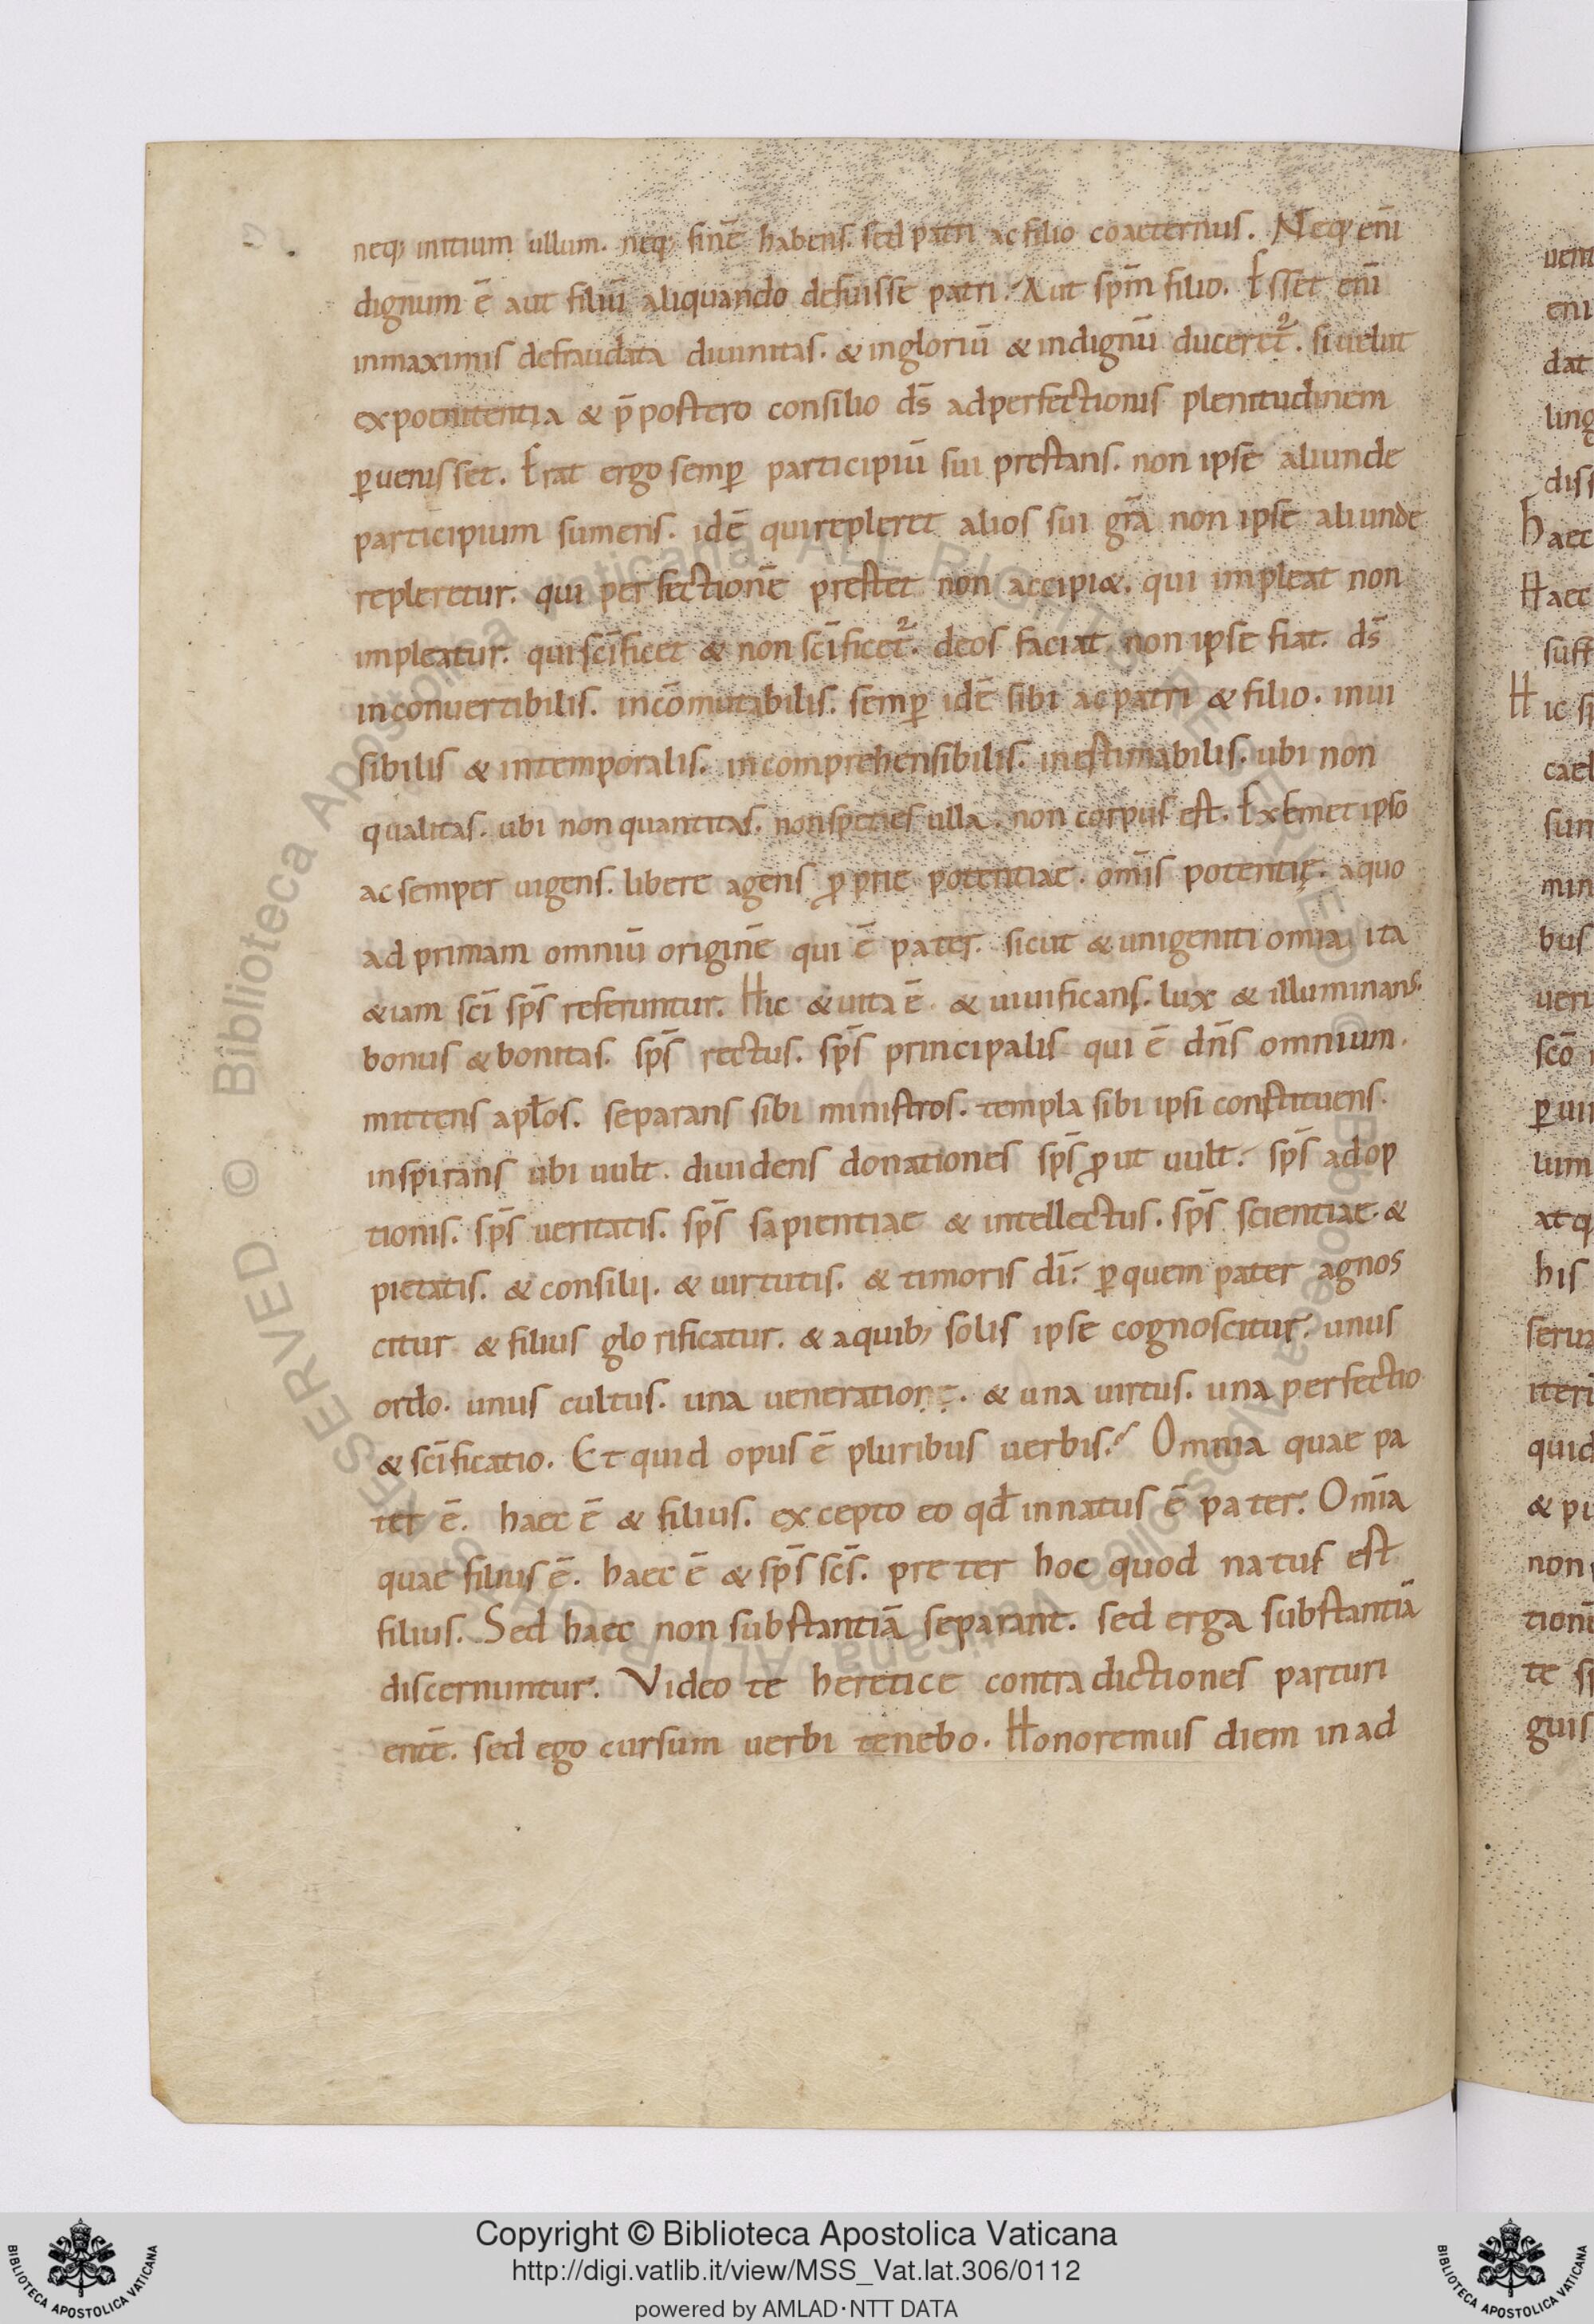 neq; initium ullum. neq; finē habens. sed patri ac filio coaeternus. Neq; eni̅
dignum ē aut filiū aliquando defuisse patri. Aut sp̄m filio. Esset eni̅
inmaximis defraudata diuinitas. & ingloriū & indignū duceret᷑. si uelut
expoenitentia & p̄postero consilio d̄s adperfectionis plenitudinem
ꝑuenisset. Erat ergo semꝑ participiū sui prestans. non ipse aliunde
participium sumens. idē quirepleret alios sui gr̄a non ipse aliunde
repleretur. qui perfectionē prestet non accipi&. qui impleat non
impleatur. qui sc̄ificet & non sc̄ificet᷑. deos faciat non ipse fiat. d̄s
inconuertibilis. incōmutabilis. semꝑ idē sibi ac patri & filio. inui
sibilis & intemporalis. incomprehensibilis. inestimabilis. ubi non
qualitas. ubi non quantitas. non species ulla. non corpus est. Exsemet ipso
ac semper uigens. libere agens ꝓprie potentiae. omīs potentię. aquo
ad primam omniū originē qui ē pater. sicut & unigeniti om̄ia ita
&iam sc̄i sp̄s referuntur. Hic & uita ē & uiuificans. lux & illuminans.
bonus & bonitas. sp̄s rectus. sp̄s principalis qui ē dn̄s omnium.
mittens apłos. separans sibi ministros. templa sibi ipsi constituens.
inspirans ubi uult. diuidens donationes sp̄s ꝓut uult. sp̄s adop
tionis. sp̄s ueritatis. sp̄s sapientiae & intellectus. sp̄s scientiae &
pietatis. & consilii. & uirtutis. & timoris d̄i. ꝑquem pater agnos
citur & filius glorificatur. & aquib; solis ipse cognoscitur. unus
ordo. unus cultus. una ueneratio. & una uirtus. una perfectio
& sc̄ificatio. Et quid opus ē pluribus uerbis. Omnia quae pa
ter ē. haec ē & filius. excepto eo qd̄ innatus ē pater. Om̄ia
quae filius ē. haec ē & sp̄s sc̄s. preter hoc quod natus est
filius. Sed haec non substantiā separant. sed erga substantiā
discernuntur. Video te heretice contradictiones parturi
entē. sed ego cursum uerbi tenebo. Honoremus diem in ad
uent
eni
dat
ling
diss
haec
Haec
suff
Hic si
cael
sun
min
bus
ueri
sc̄o
ꝑui
lum
atq
his
serua
iteri
quid
& pi
non
tionē
te sp
guis
© Biblioteca Apostolica Vaticana ALL RIGHTS RESERVED
Copyright © Biblioteca Apostolica Vaticana
http://digi.vatlib.it/view/MSS_Vat.lat.306/0112
powered by AMLAD·NTT DATA
BIBLIOTECA APOSTOLICA VATICANA
BIBLIOTECA APOSTOLICA VATICANA